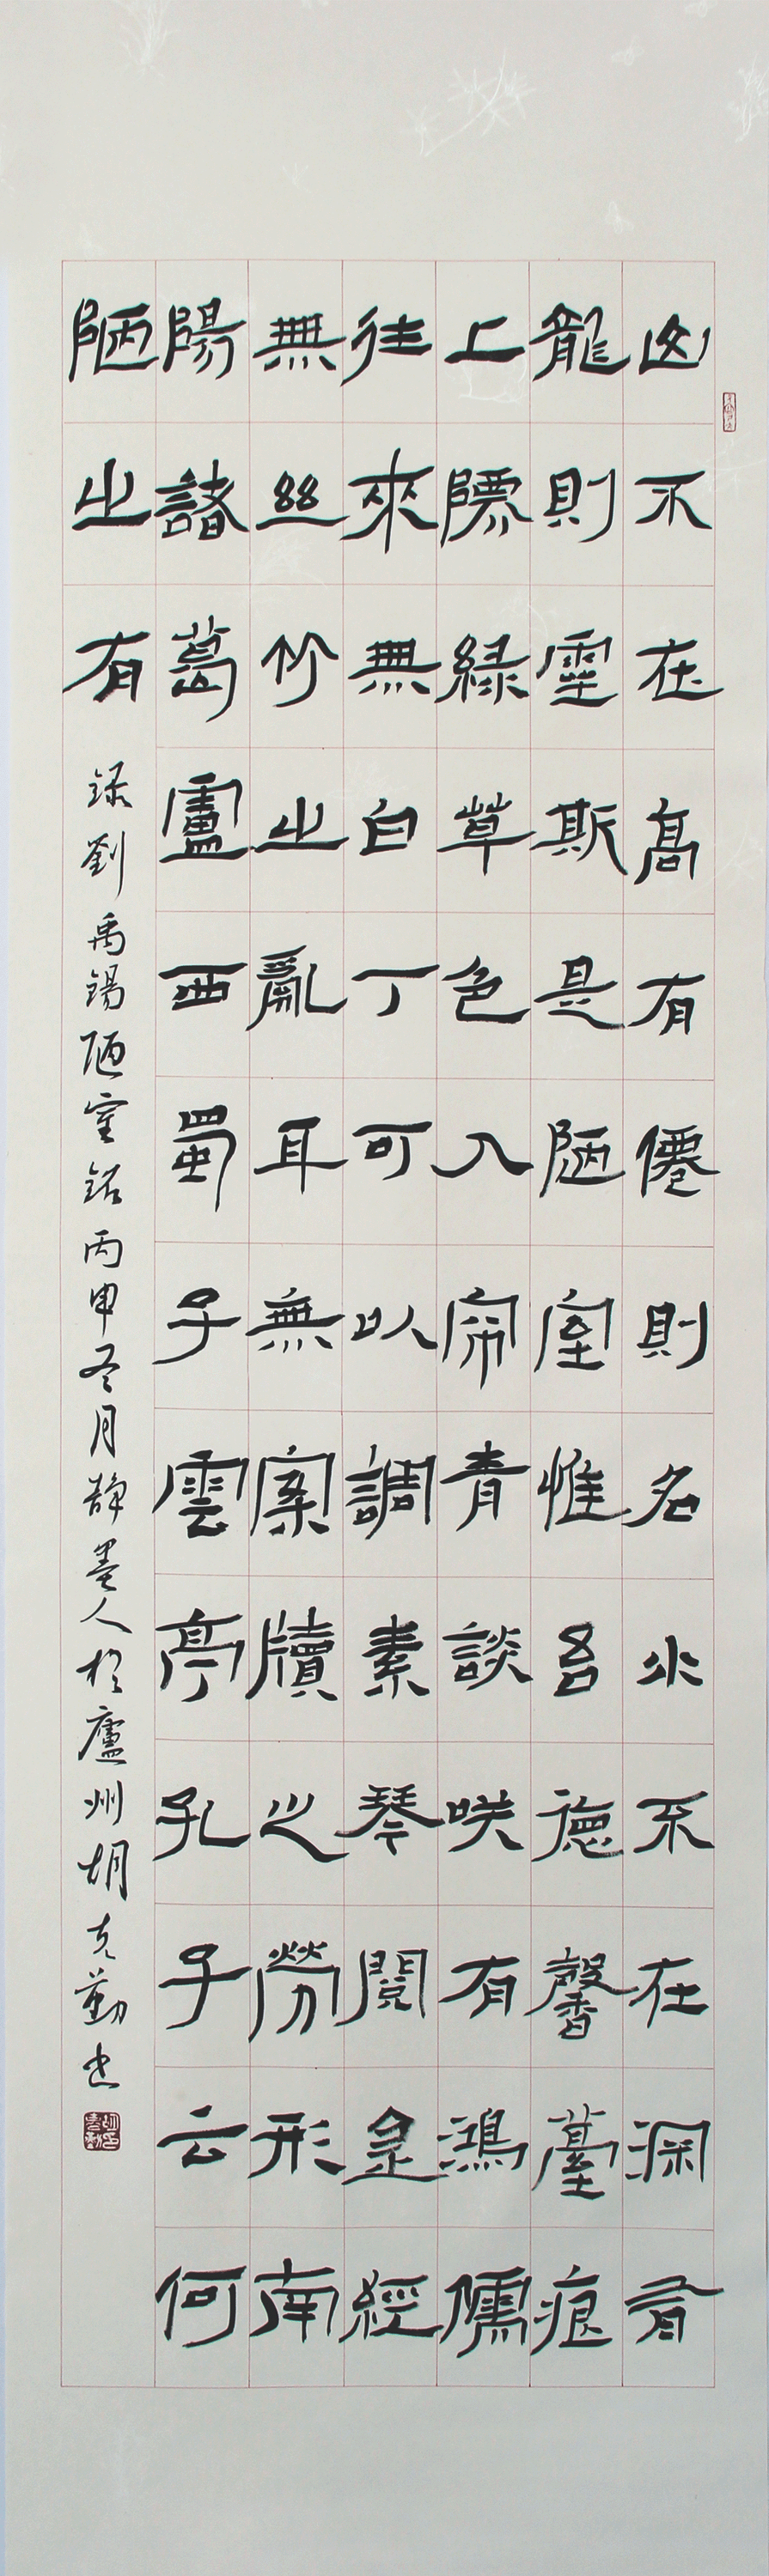 山不在高有僊則名水不在深有
龍則靈斯是陋室惟吾德馨薹痕
上隟綠草色入帘青談咲有鴻儒
往來無白丁可以調素琴閱金經
無丝竹之亂耳無案牘之勞形南
陽諸葛廬西蜀子雲亭孔子云何
陋之有
录劉禹锡陋室铭丙申冬月静墨人於廬州胡克勤书